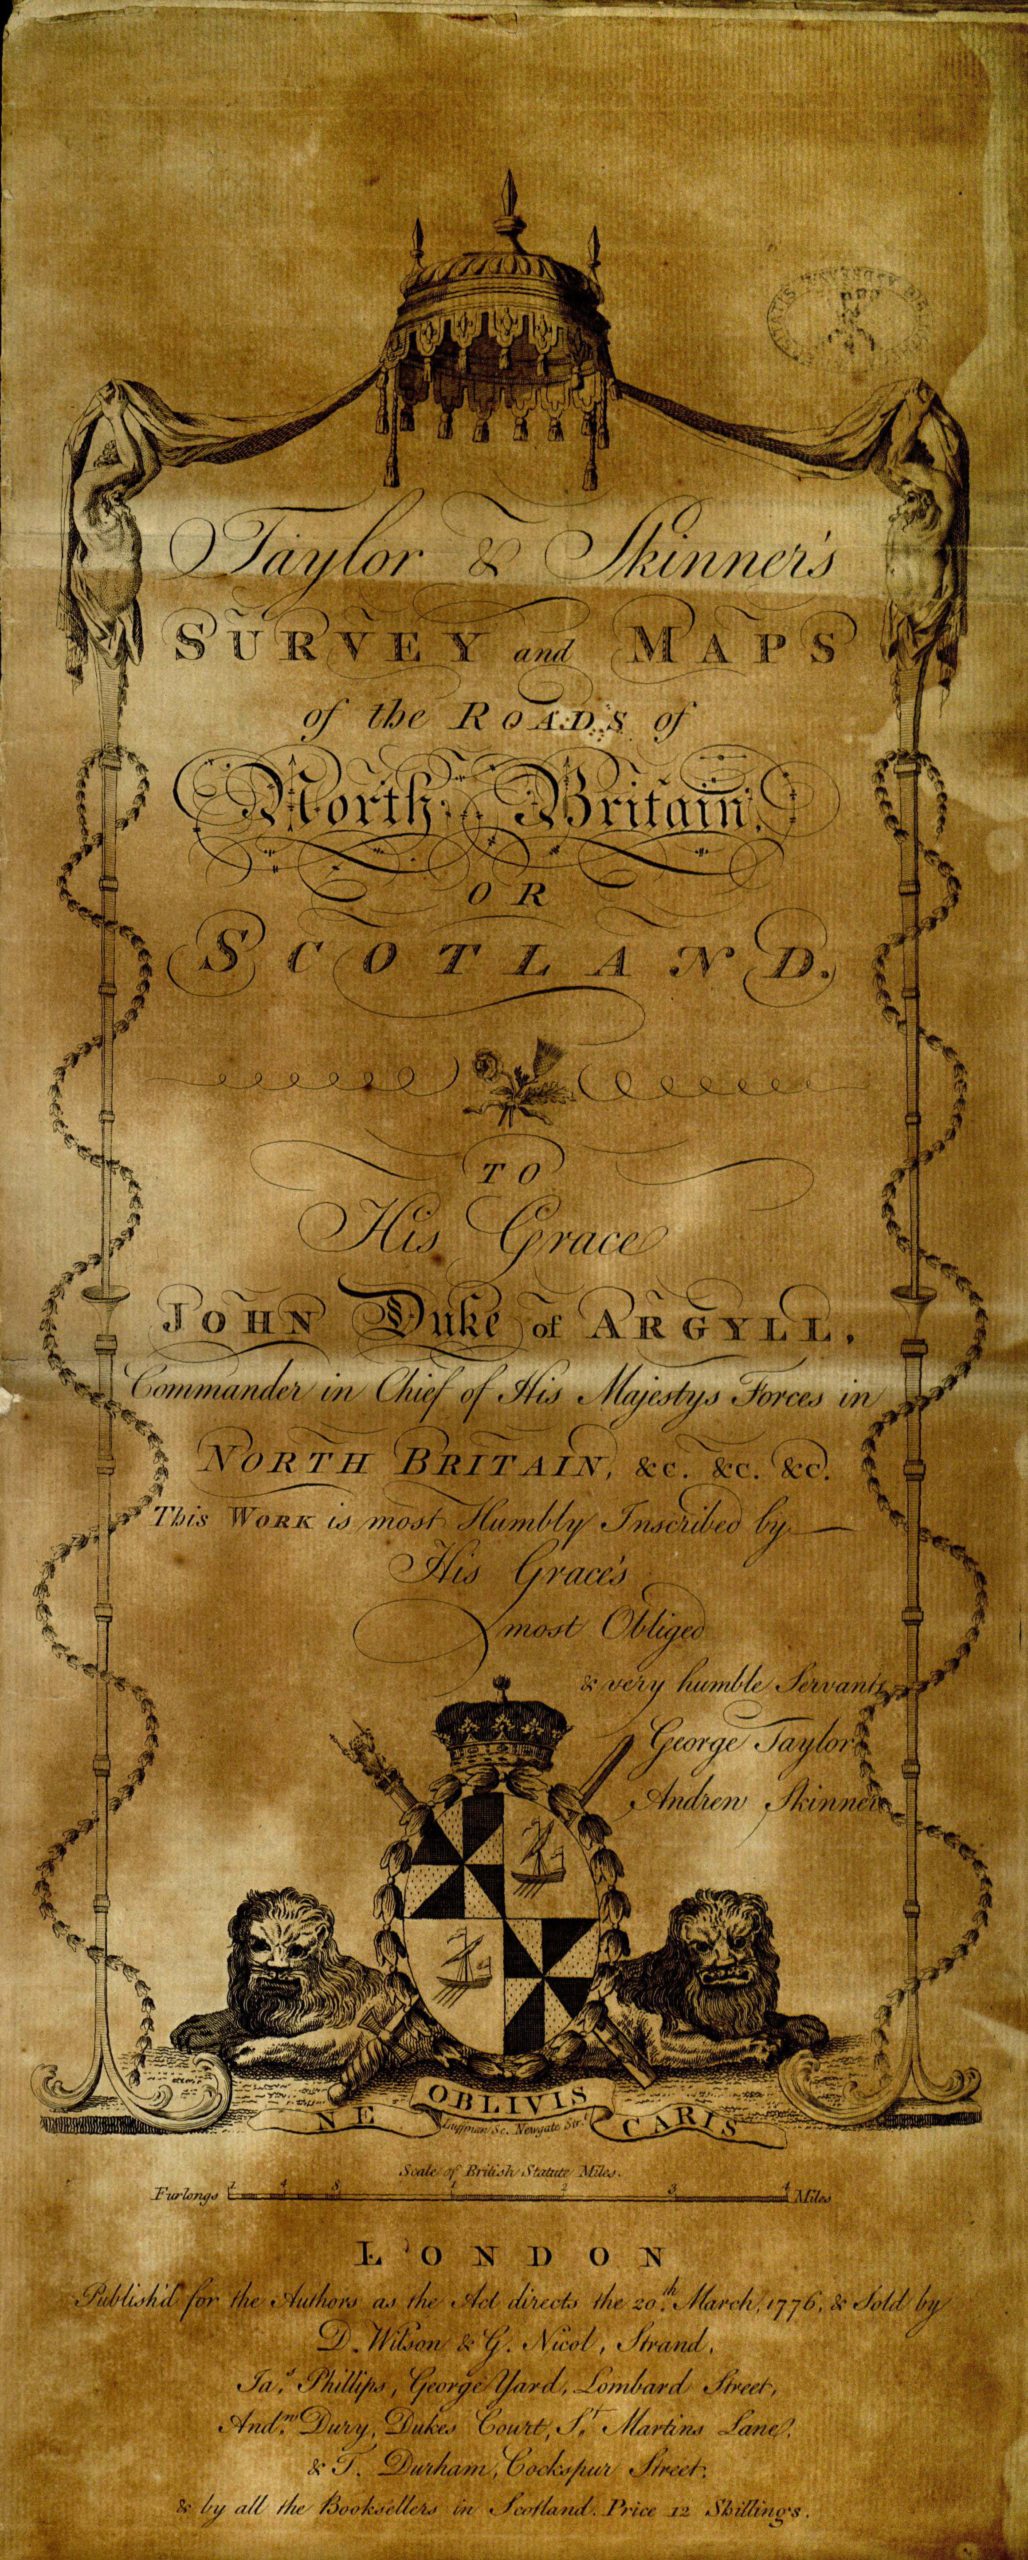 Taylor & Skinner's
SURVEY and MAPS
of the ROADS of
North Britain,
OR
SCOTLAND.
TO
His Grace
JOHN Duke of ARGYLL,
Commander in Chief of His Majestys Forces in
NORTH BRITAIN, &c. &c. &c.
This WORK is most Humbly Inscribed by
His Grace's
most Obliged
& very humble Servants
George Taylor
Andrew Skinner
NE OBLIVISCARIS
Luffman Sc. Newgate Str.
Scale of British Statute Miles.
Furlongs 1 4 8 1 2 3 4 Miles
LONDON
Publish'd for the Authors as the Act directs the 20th. March, 1776, & Sold by
D. Wilson & G. Nicol, Strand,
Jas. Phillips, George Yard, Lombard Street,
Andw. Dury, Dukes Court, St. Martins Lane,
& T. Durham, Cockspur Street.
& by all the Booksellers in Scotland. Price 12 Shillings.